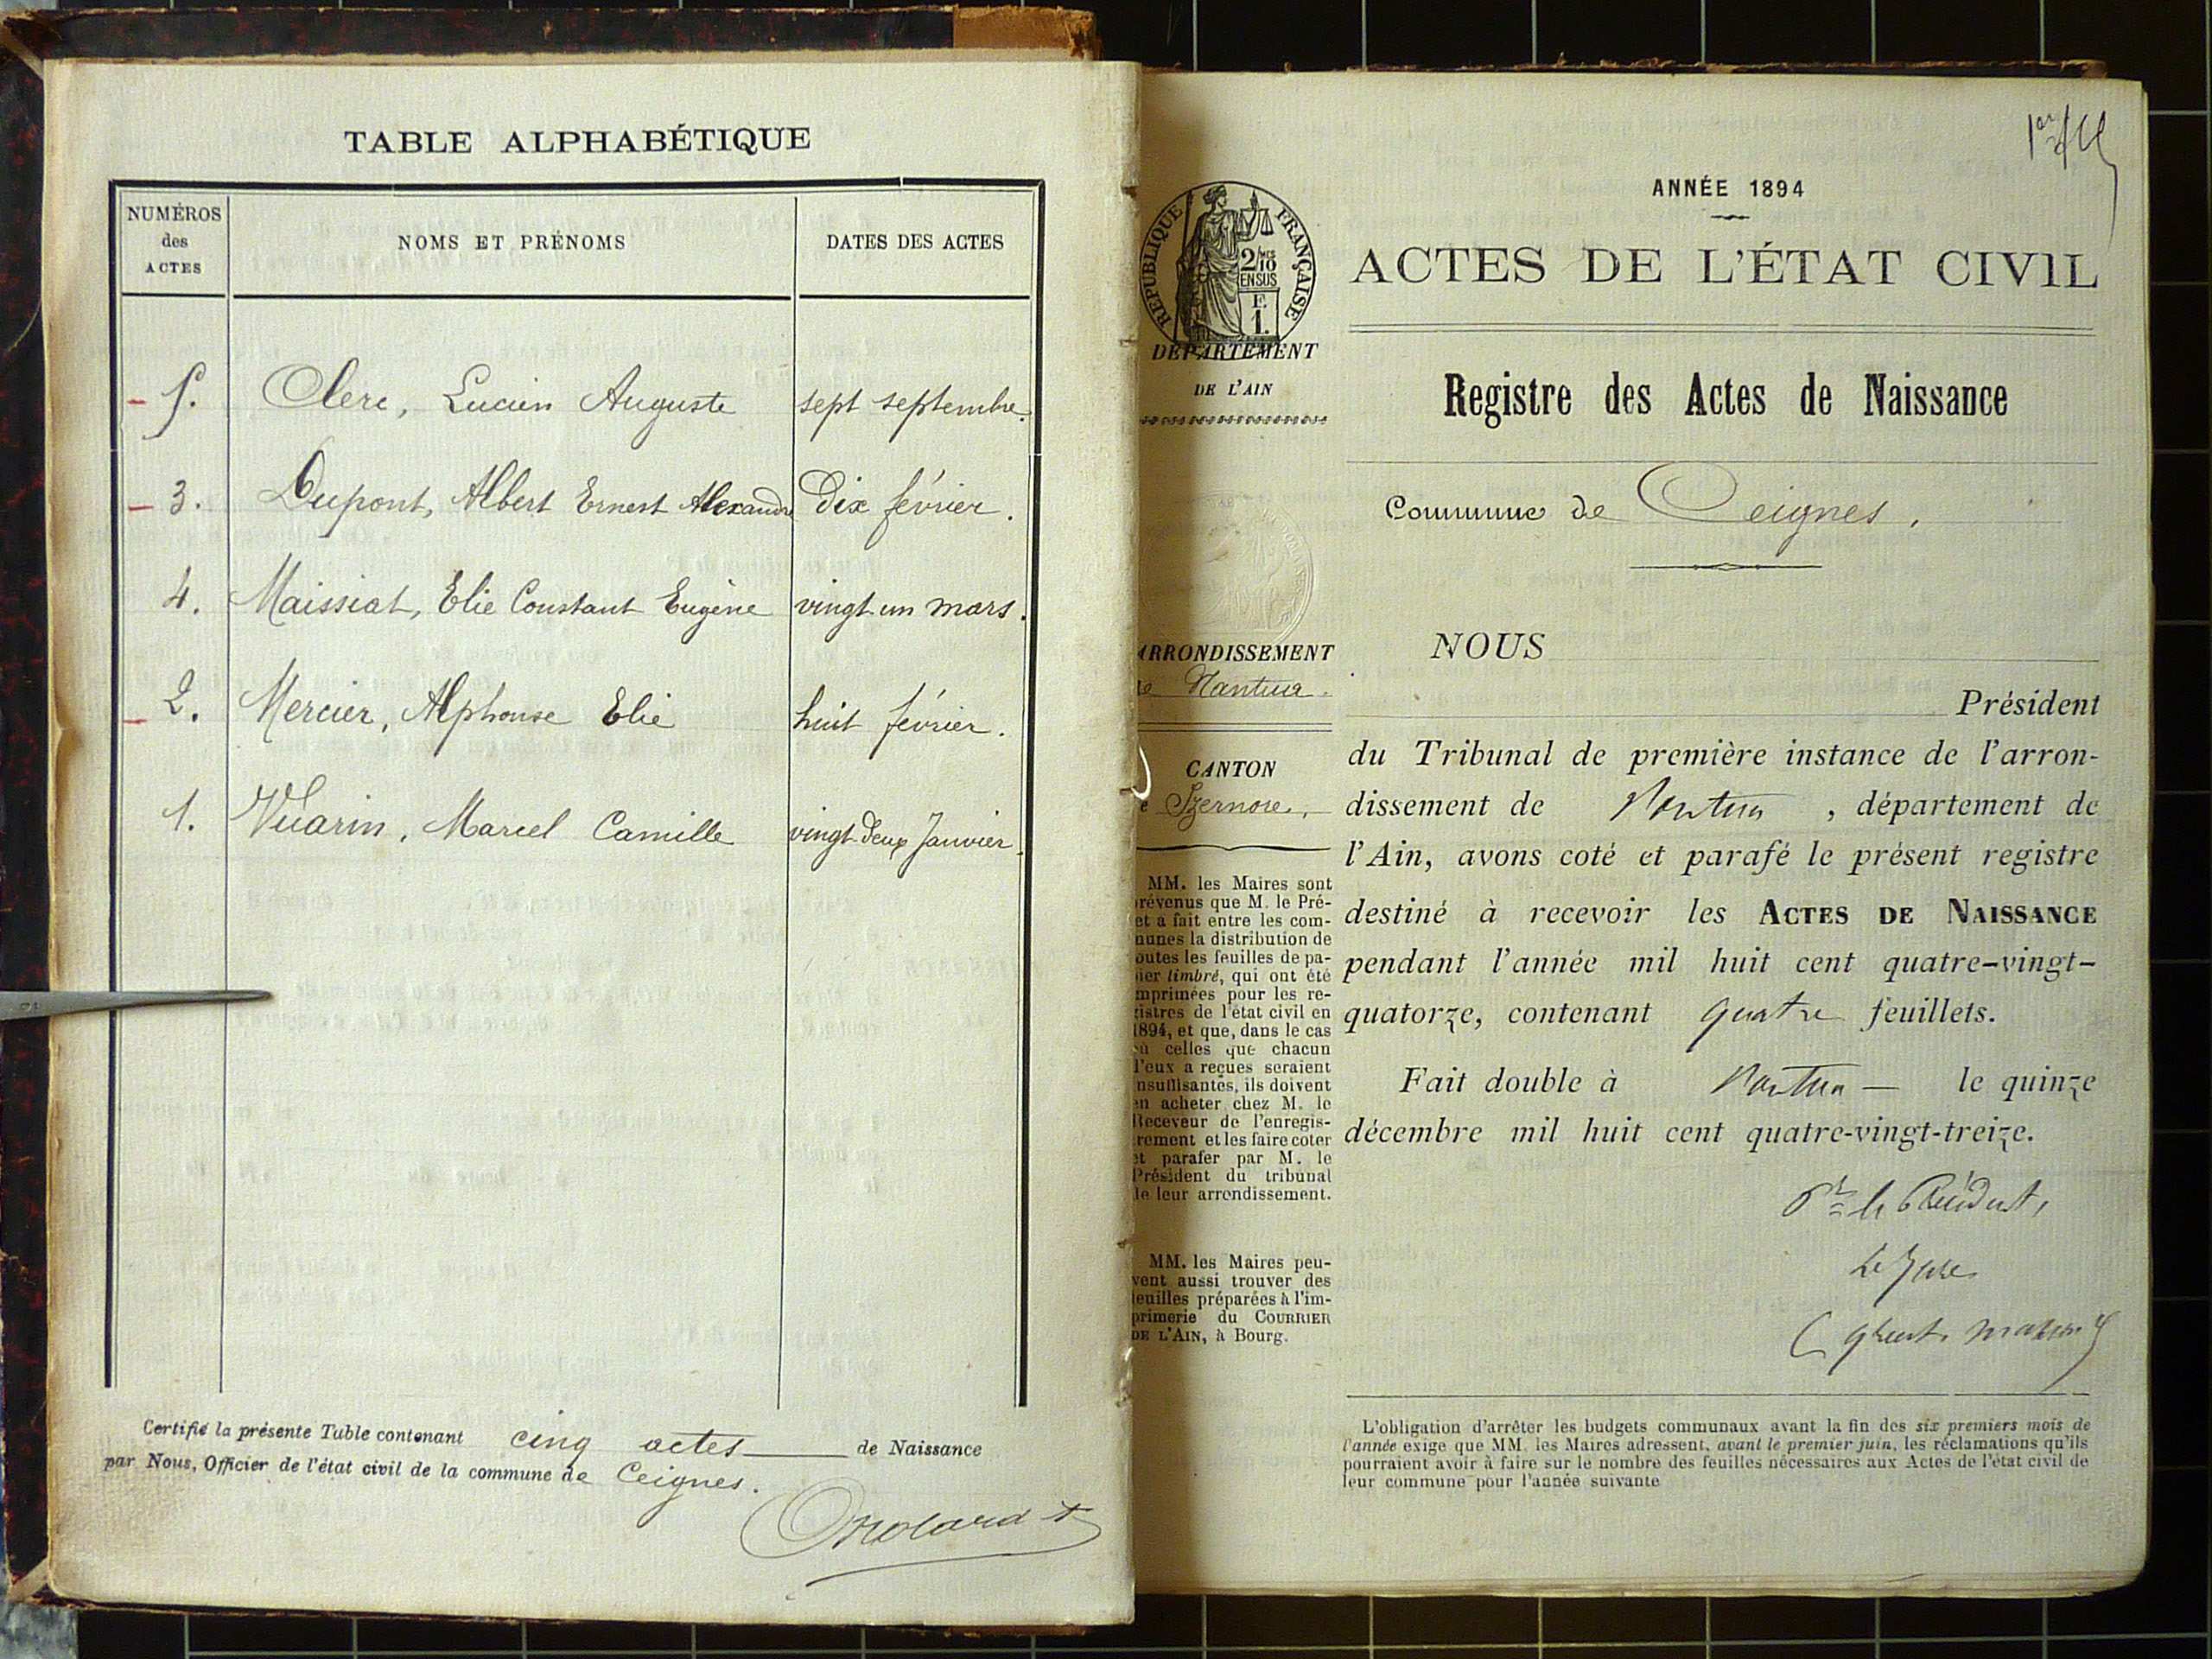 TABLE ALPHABÉTIQUE
NUMÉROS
des
ACTES
NOMS ET PRÉNOMS
DATES DES ACTES
5. Clerc, Lucien Auguste sept septembre.
3. Dupont, Albert Ernest Alexandre Dix février.
4. Maissiat, Elie Constant Eugène vingt un mars.
2. Mercier, Alphonse Elie huit février.
1. Vuarin, Marcel Camille vingt deux Janvier.
Certifié la présente Table contenant cinq actes de Naissance
par Nous, Officier de l'état civil de la commune de Ceignes.
1er
ANNÉE 1894
ACTES DE L'ÉTAT CIVIL
Registre des Actes de Naissance
Commune de Ceignes,
RÉPUBLIQUE FRANÇAISE
2/10
EN SUS
F.
1.
DÉPARTEMENT
DE L'AIN
ARRONDISSEMENT
de Nantua.
CANTON
e Izernore,
MM. les Maires sont
prévenus que M. le Pré-
et a fait entre les com-
munes la distribution de
outes les feuilles de pa-
pier timbré, qui ont été
imprimées pour les re-
gistres de l'état civil en
1894, et que, dans le cas
où celles que chacun
d'eux a reçues seraient
insuffisantes, ils doivent
en acheter chez M. le
Receveur de l'enregis-
trement et les faire coter
et parafer par M. le
Président du tribunal
de leur arrondissement.
MM. les Maires peu-
vent aussi trouver des
feuilles préparées à l'im-
primerie du COURRIER
DE L'AIN, à Bourg.
NOUS
Président
du Tribunal de première instance de l'arron-
dissement de Nantua, département de
l'Ain, avons coté et parafé le présent registre
destiné à recevoir les ACTES DE NAISSANCE
pendant l'année mil huit cent quatre-vingt-
quatorze, contenant quatre feuillets.
Fait double à Nantua — le quinze
décembre mil huit cent quatre-vingt-treize.
Pr le Président,
Le Juge
L'obligation d'arrêter les budgets communaux avant la fin des six premiers mois de
l'année exige que MM. les Maires adressent, avant le premier juin, les réclamations qu'ils
pourraient avoir à faire sur le nombre des feuilles nécessaires aux Actes de l'état civil de
leur commune pour l'année suivante